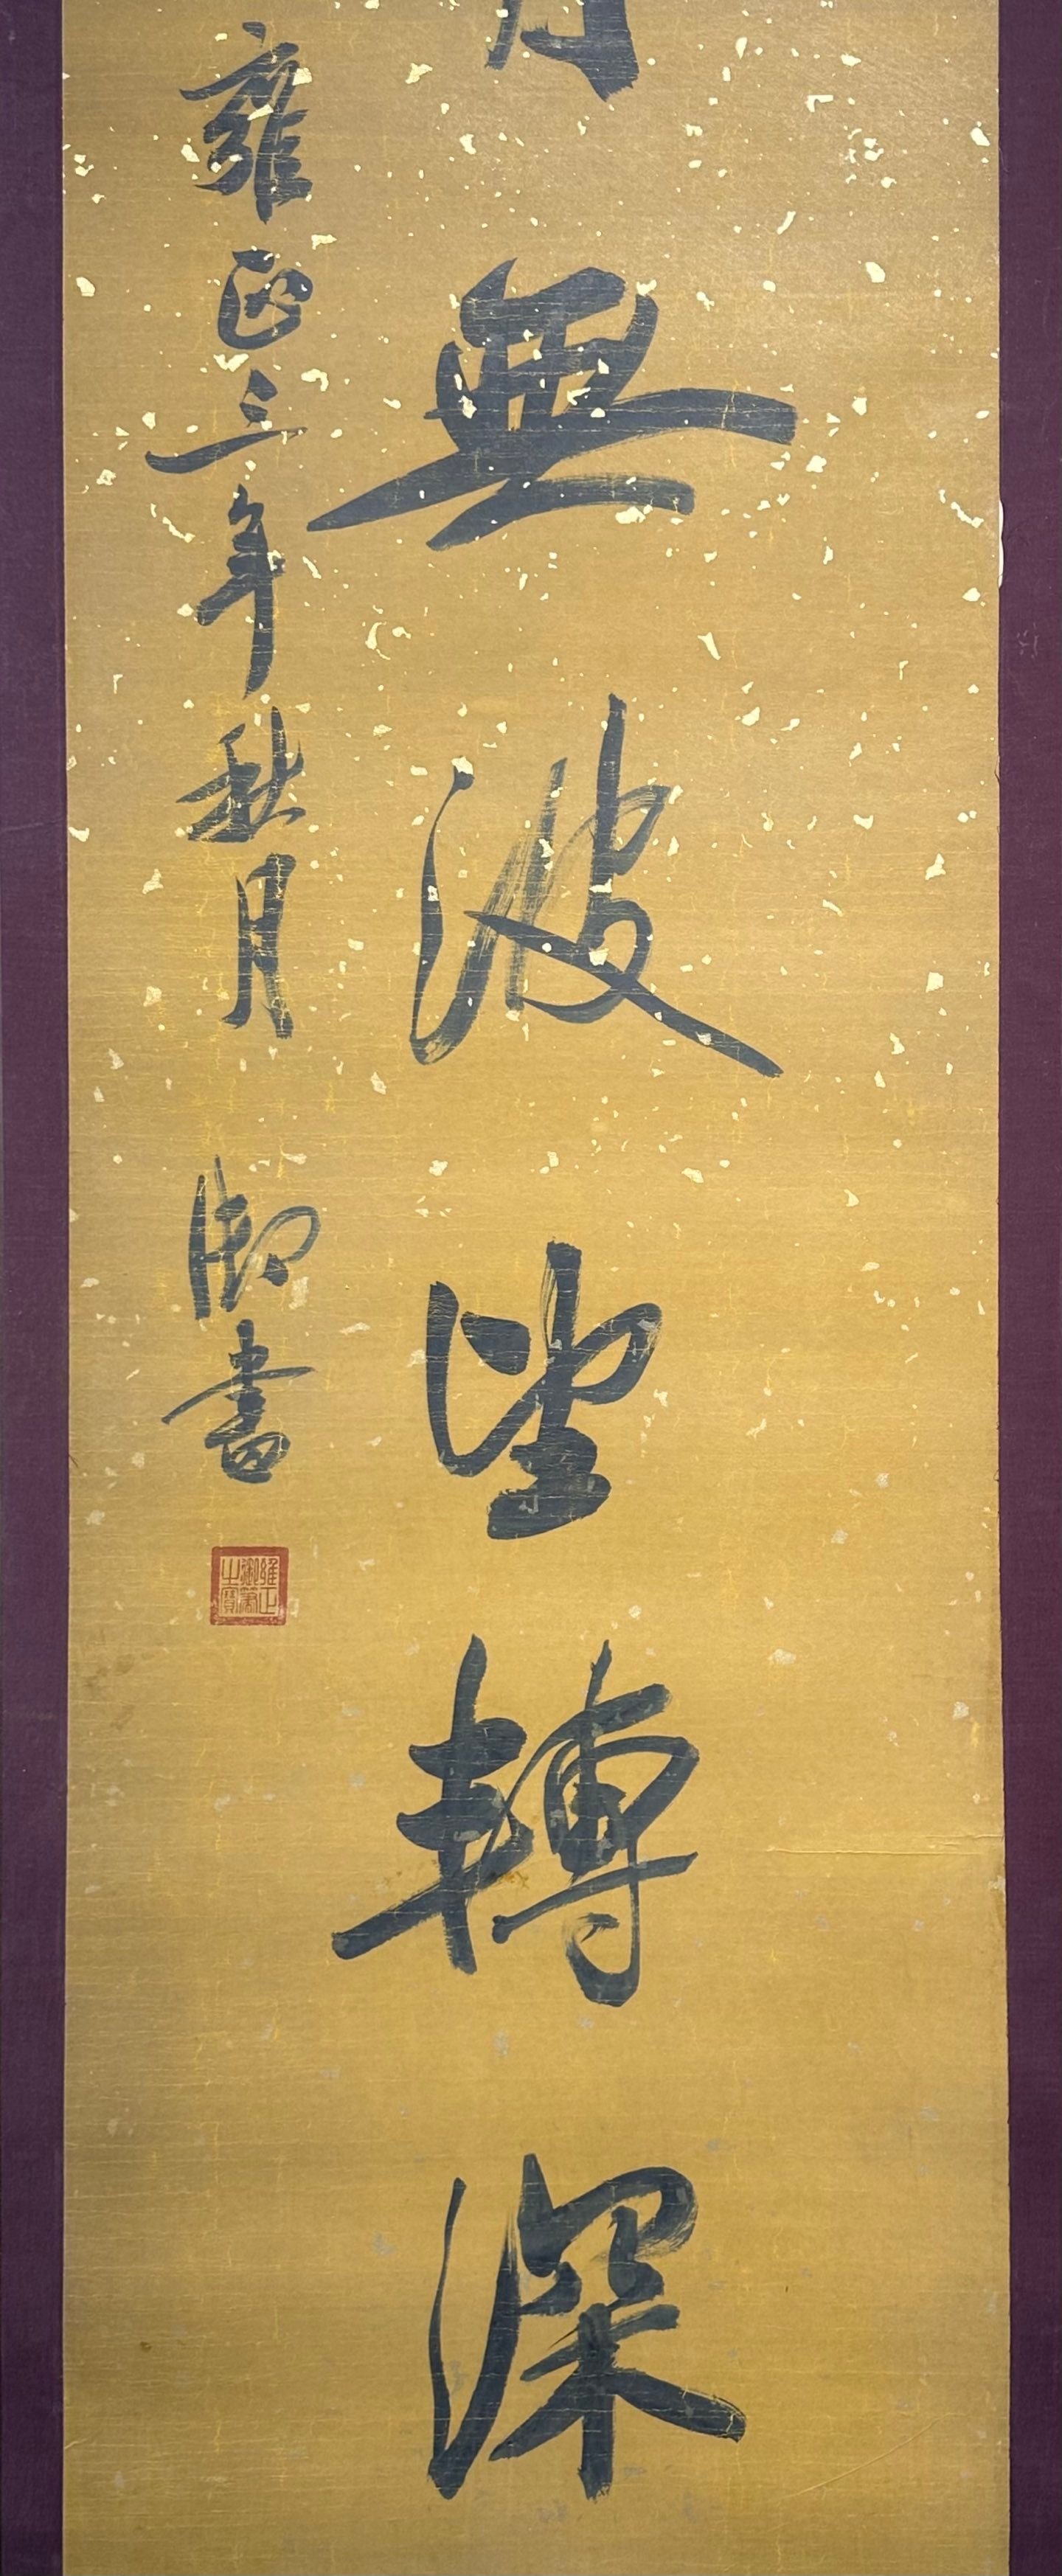 無波望轉深
雍正三年秋月 御書
雍正
御筆
之寶